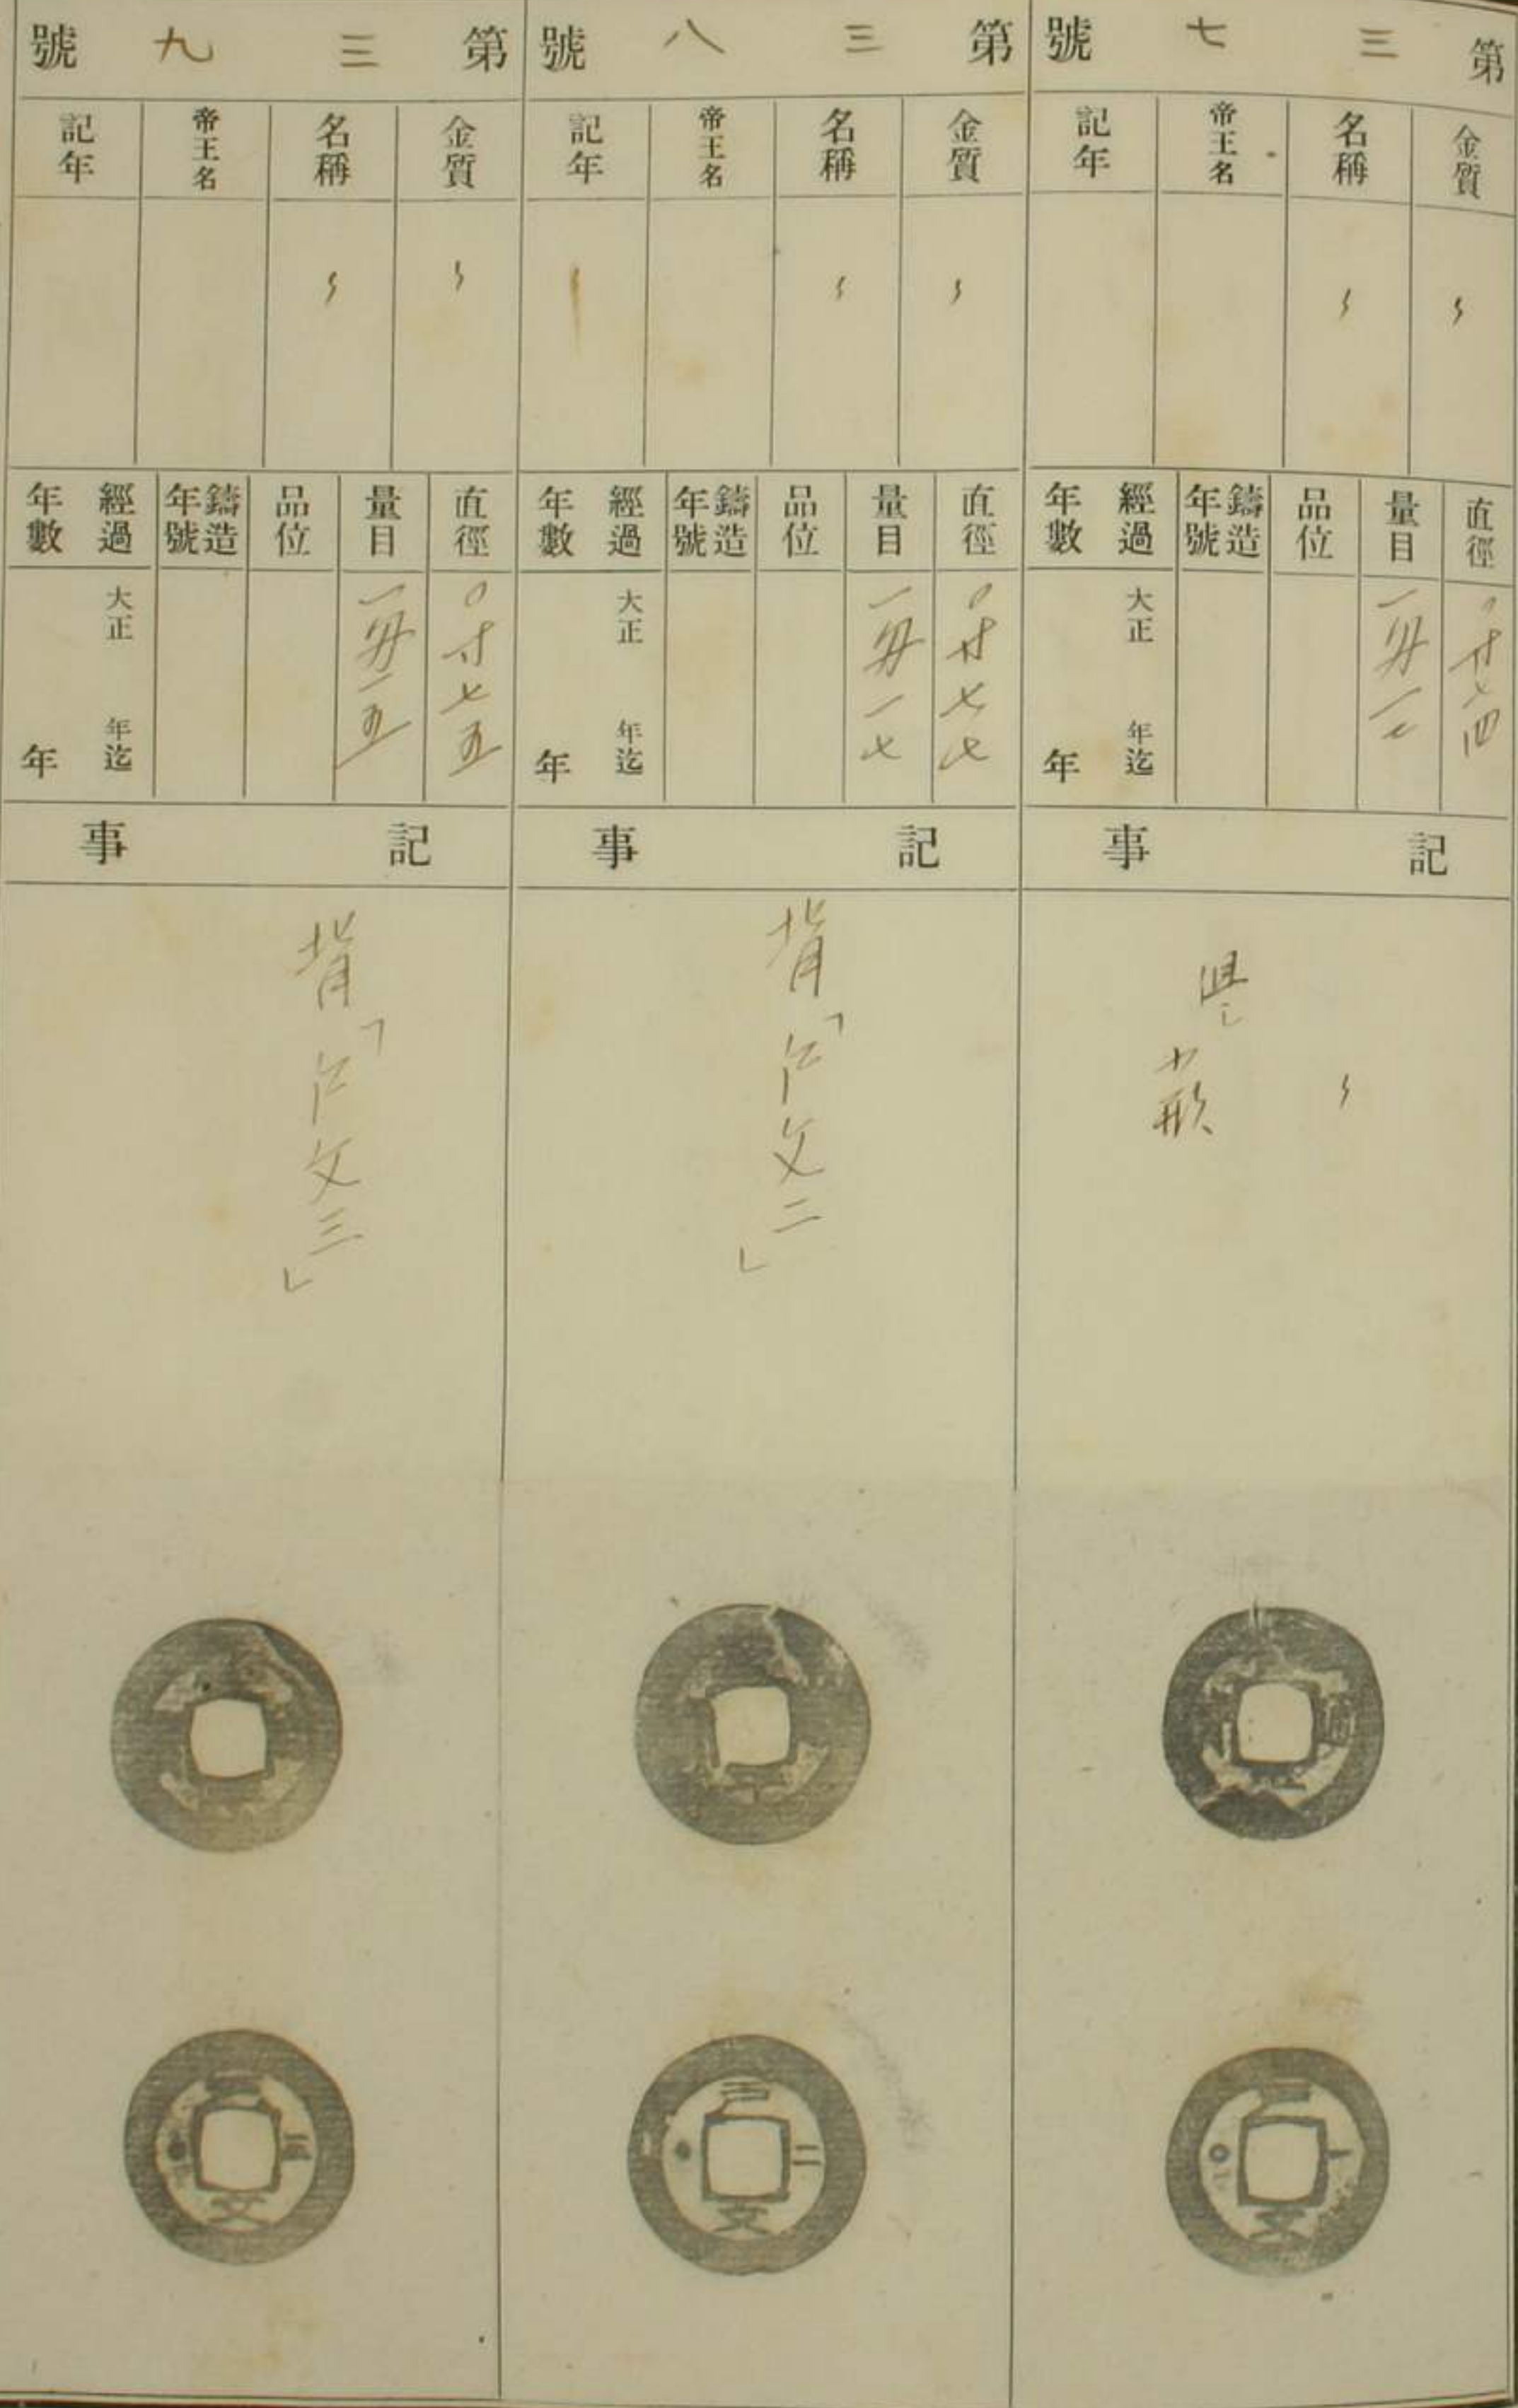 第三七號
金質
名稱
帝王名
記年
〻
〻
直徑
量目
品位
鑄造年號
經過年數
〇寸七四
一匁一七
大正 年迄
年
記事
〻
小形
第三八號
金質
名稱
帝王名
記年
〻
〻
直徑
量目
品位
鑄造年號
經過年數
〇寸七七
一匁一七
大正 年迄
年
記事
背「户文二」
户
二
文
第三九號
金質
名稱
帝王名
記年
〻
〻
直徑
量目
品位
鑄造年號
經過年數
〇寸七五
一匁一五
大正 年迄
年
記事
背「户文三」
三
文